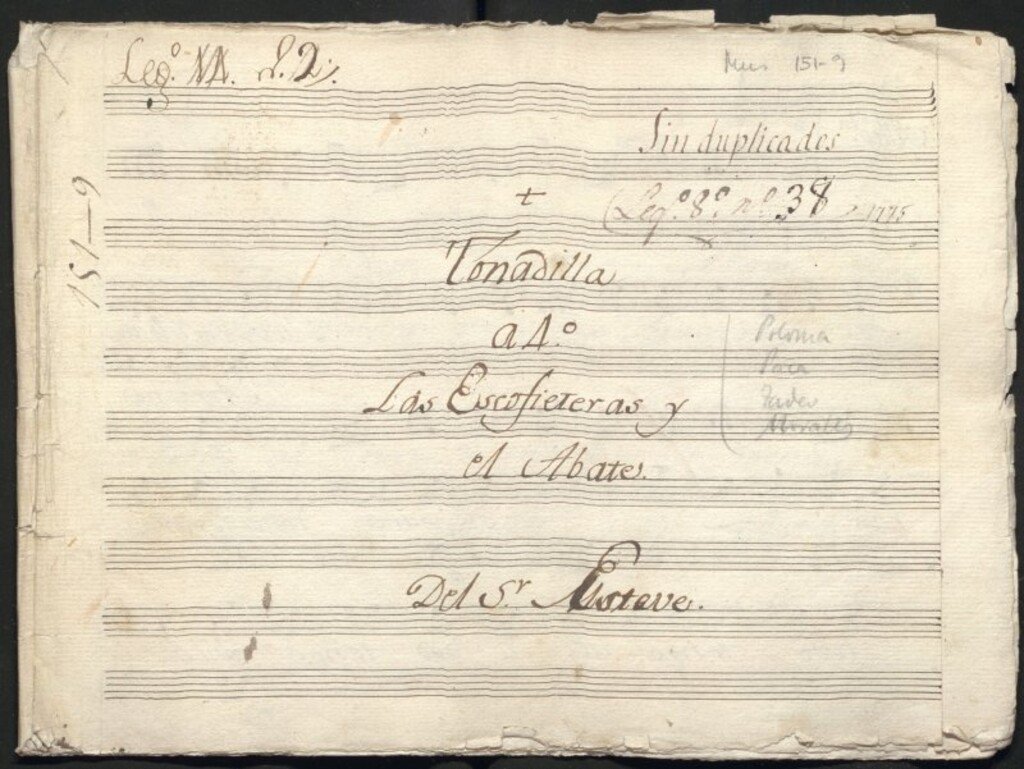 Leg.º n.2.
Mus 151-9
Sin duplicados
+
(Leg.º 8.º n.º 38 1775
151-9
Tonadilla
a 4.º
Las Escofieteras y
el Abate.
Polonia
Paca
Tadeo
Morales
Del S.r Esteve.